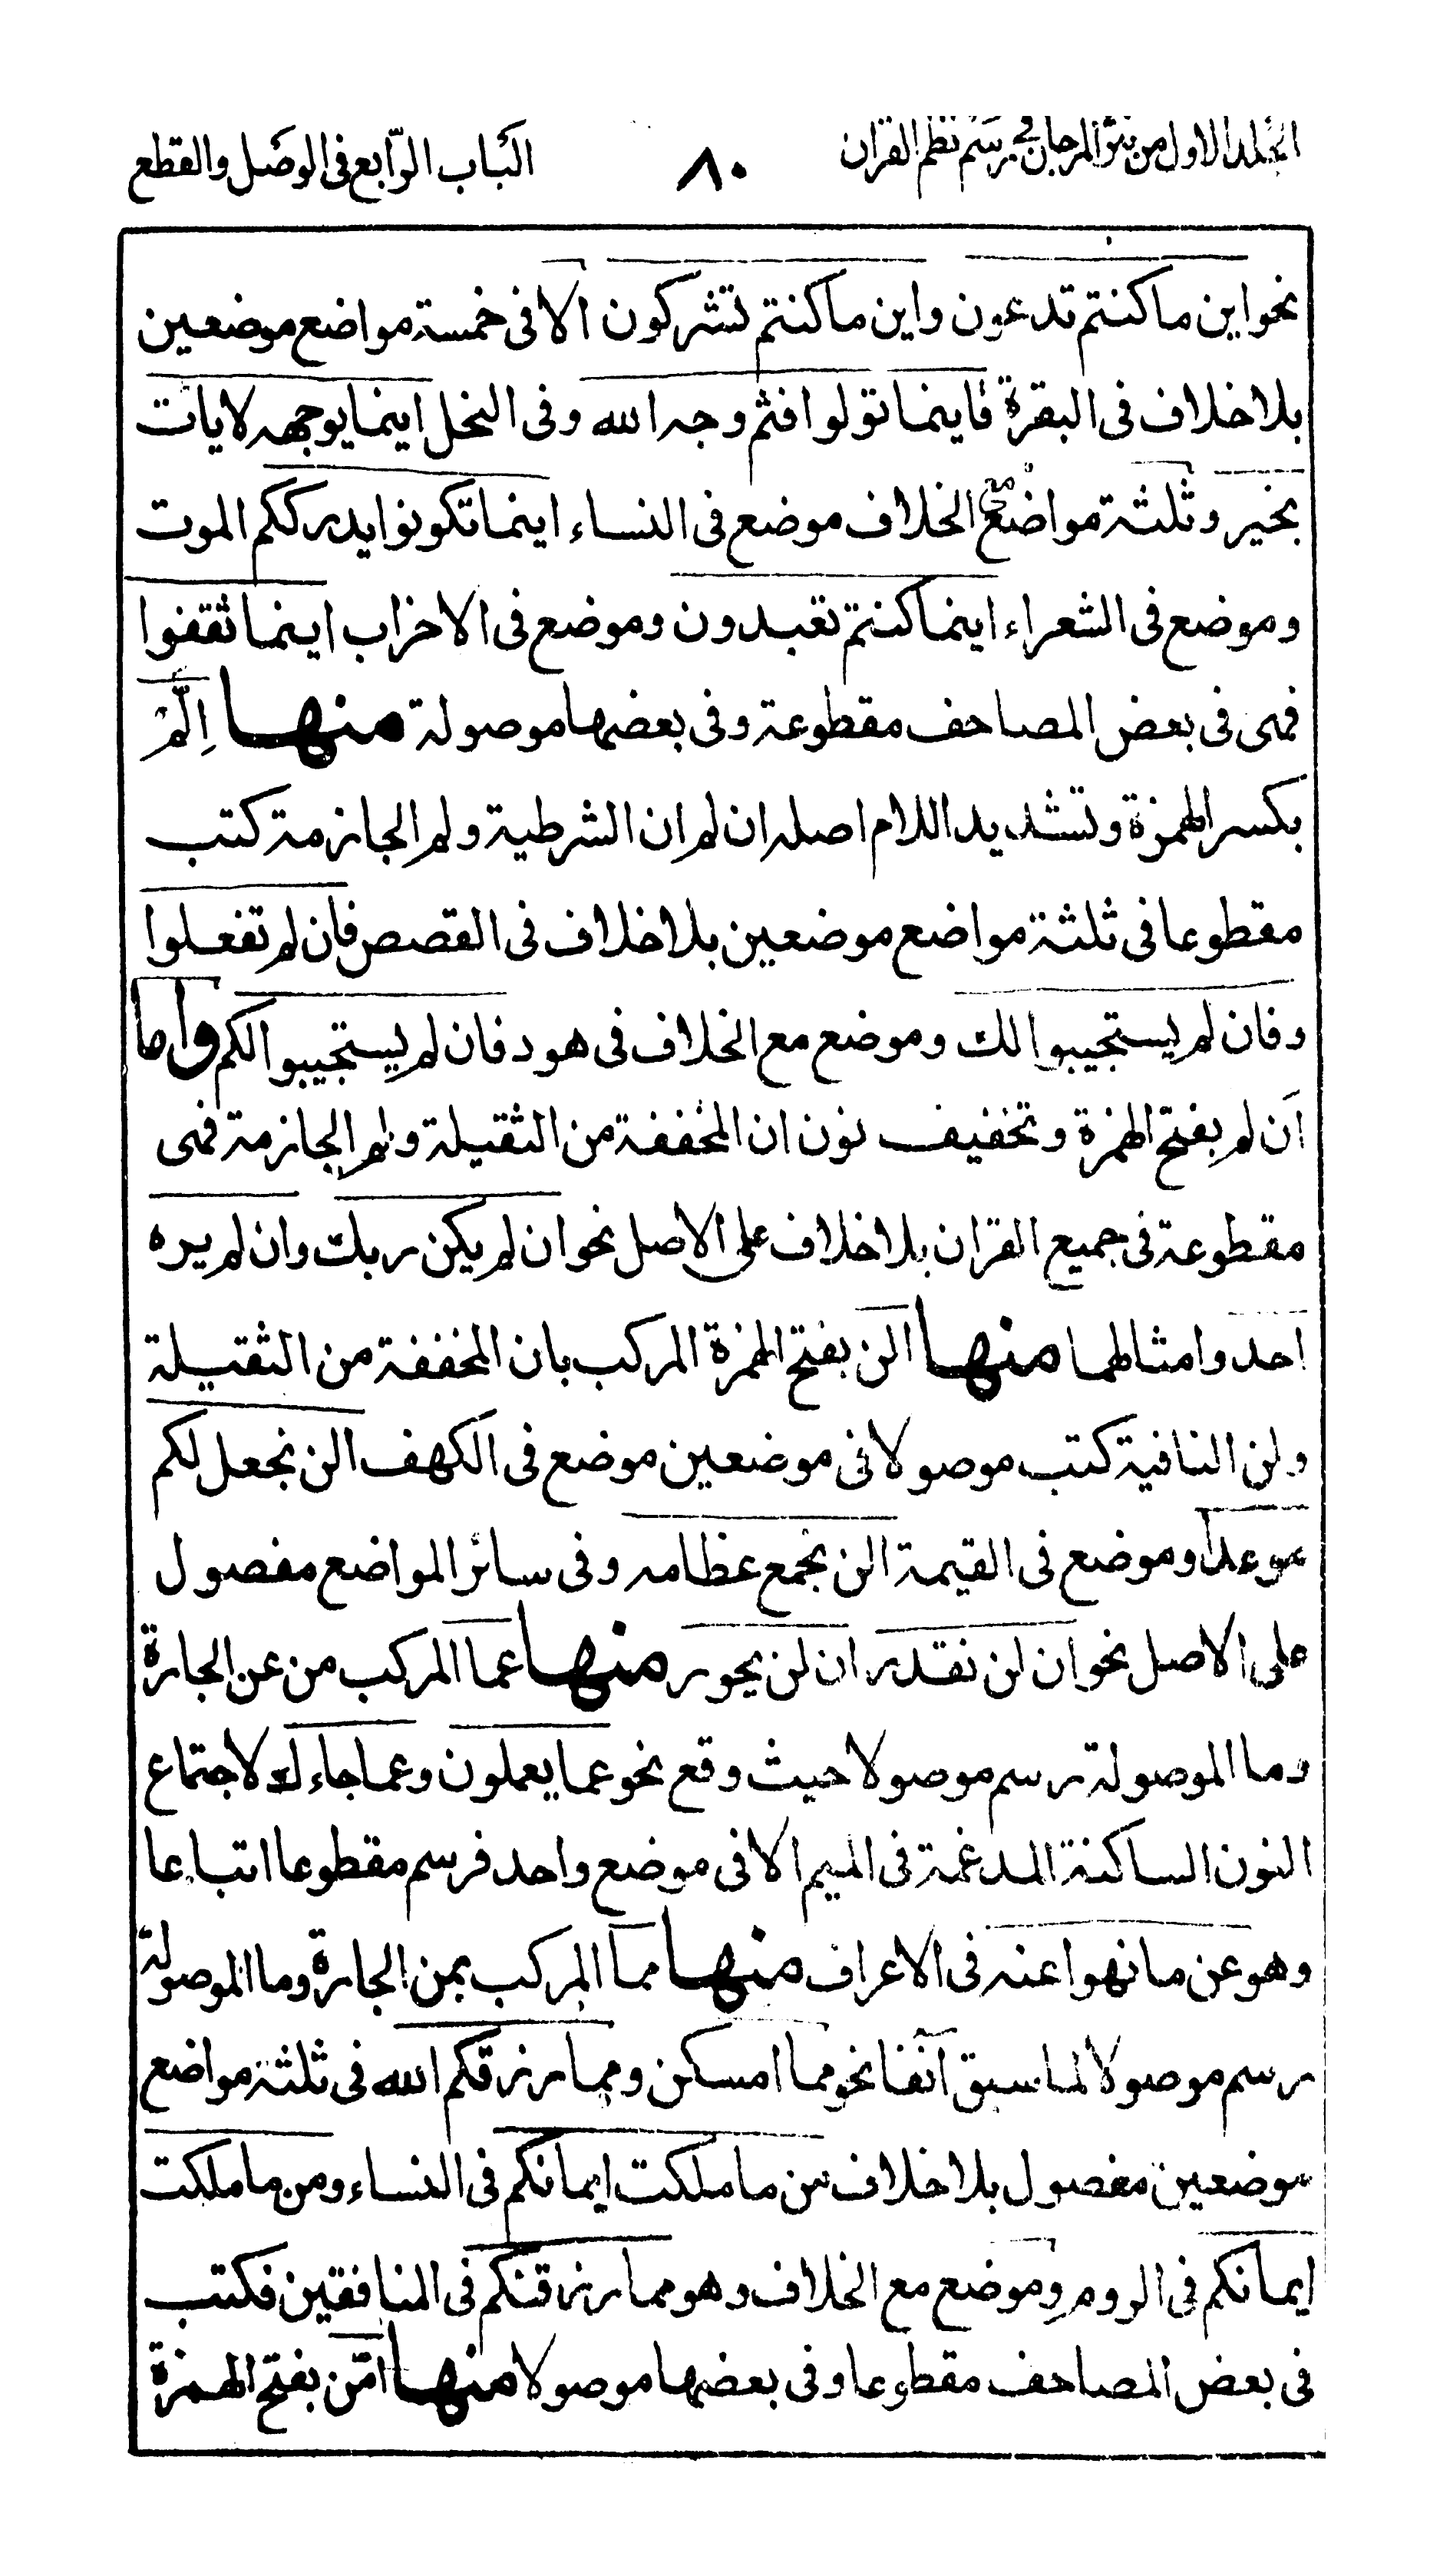 المجلد الاول من نثر المرجان في رسم نظم القران
٨٠
الباب الرّابع فى الوصل والقطع
نحو اين ما كنتم تدعون واين ما كنتم تشركون الا فى خمسة مواضع موضعين
بلا خلاف فى البقرة فاينما تولوا فثم وجه الله وفى النحل اينما يوجهه لايات
بخير وثلثة مواضع مع الخلاف موضع فى النساء اينما تكونوا يدرككم الموت
وموضع فى الشعراء اينما كنتم تعبدون وموضع فى الاحزاب اينما ثقفوا
فهى فى بعض المصاحف مقطوعة وفى بعضها موصولة منها اِلَّمْ
بكسر الهمزة وتشديد اللام اصله ان لم ان الشرطية ولم الجازمة كتب
مقطوعا فى ثلثة مواضع موضعين بلا خلاف فى القصص فان لم تفعلوا
وفان لم يستجيبوا لك وموضع مع الخلاف فى هود فان لم يستجيبوا لكم واما
اَن لم بفتح الهمزة وتخفيف نون ان المخففة من الثقيلة ولم الجازمة فهى
مقطوعة فى جميع القران بلا خلاف على الاصل نحو ان لم يكن ربك وان لم يره
احد وامثالهما منها الن بفتح الهمزة المركب بان المخففة من الثقيلة
ولن النافية كتب موصولا فى موضعين موضع فى الكهف الن نجعل لكم
موعدا وموضع فى القيمة الن نجمع عظامه وفى سائر المواضع مفصول
على الاصل نحو ان لن نقدر ان لن يحور منها عما المركب من عن الجارة
وما الموصولة رسم موصولا حيث وقع نحو عما يعملون وعما جاءك لاجتماع
النون الساكنة المدغمة فى الميم الا فى موضع واحد فرسم مقطوعا اتباعا
وهو عن ما نهوا عنه فى الاعراف منها مما المركب بمن الجارة وما الموصولة
رسم موصولا لما سبق آنفا نحو مما امسكن ومما رزقكم الله فى ثلثة مواضع
موضعين مفصول بلا خلاف من ما ملكت ايمانكم فى النساء ومن ما ملكت
ايمانكم فى الروم وموضع مع الخلاف وهو مما رزقنكم فى المنافقين فكتب
فى بعض المصاحف مقطوعا وفى بعضها موصولا منها امّن بفتح الهمزة